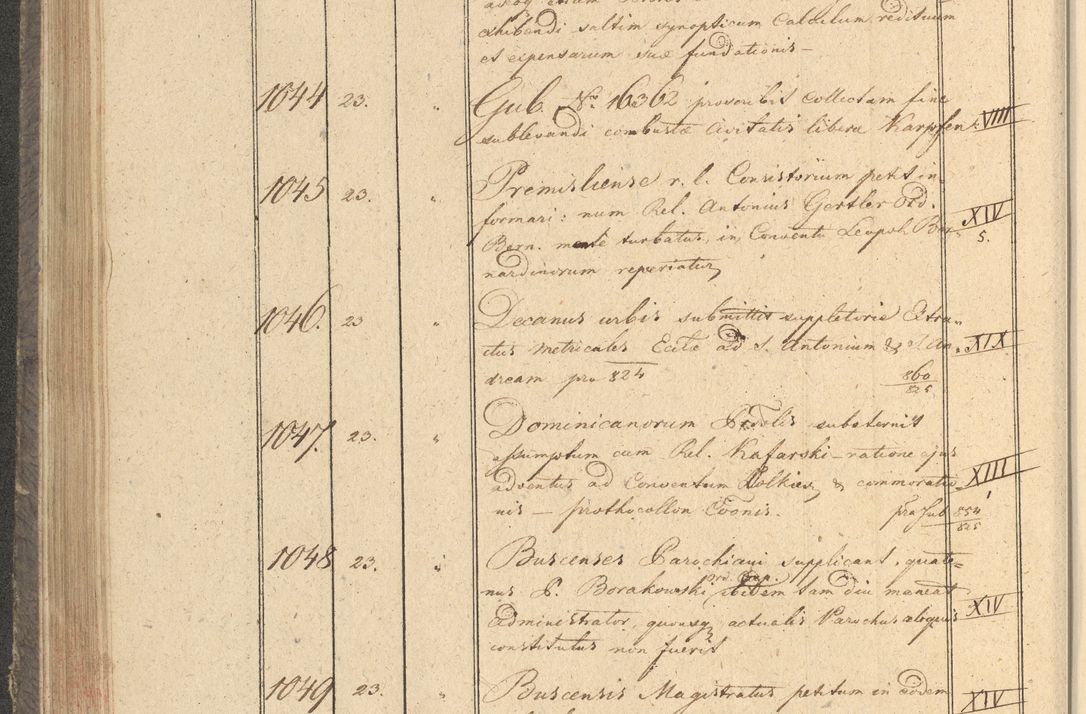 exhibendi saltim synopticum Calculum redituum
et expensarum suæ fundationis —
1044 23. " Gub. Nr. 16362 proscribit Collectam fine
sublevandi combustæ Civitatis liberæ Karpfen. VIII
1045 23. " Premisliense r. l. Consistorium petit in-
formari: num Rel. Antonius Gertler Ord. XIV
Bern. mente turbatus, in Conventu Leopol. Ber- 5.
nardinorum reperiatur
1046. 23 " Decanus urbis submittit suppletorie Extra-
ctus Metricales Ecclæ ad S. Antonium & S. An- XIX
dream pro 824 860/825
1047. 23. " Dominicanorum Pródlis substernit
assumptum cum Rel. Kafarski — ratione ejus
adventus ad Conventum Zolkiev, & commoratio- XIII
nis — prothocollon Coonis. pra Jub 854/825 1
1048 23. " Buscenses Parochiani supplicant, quate-
nus P. Borakowski Ord. Praep. ibidem tam diu maneat
Administrator, quousq actualis Parochus aloquis XIV
constitutus non fuerit
1049 23. " Buscensis Magistratus petitum in eodem XIV